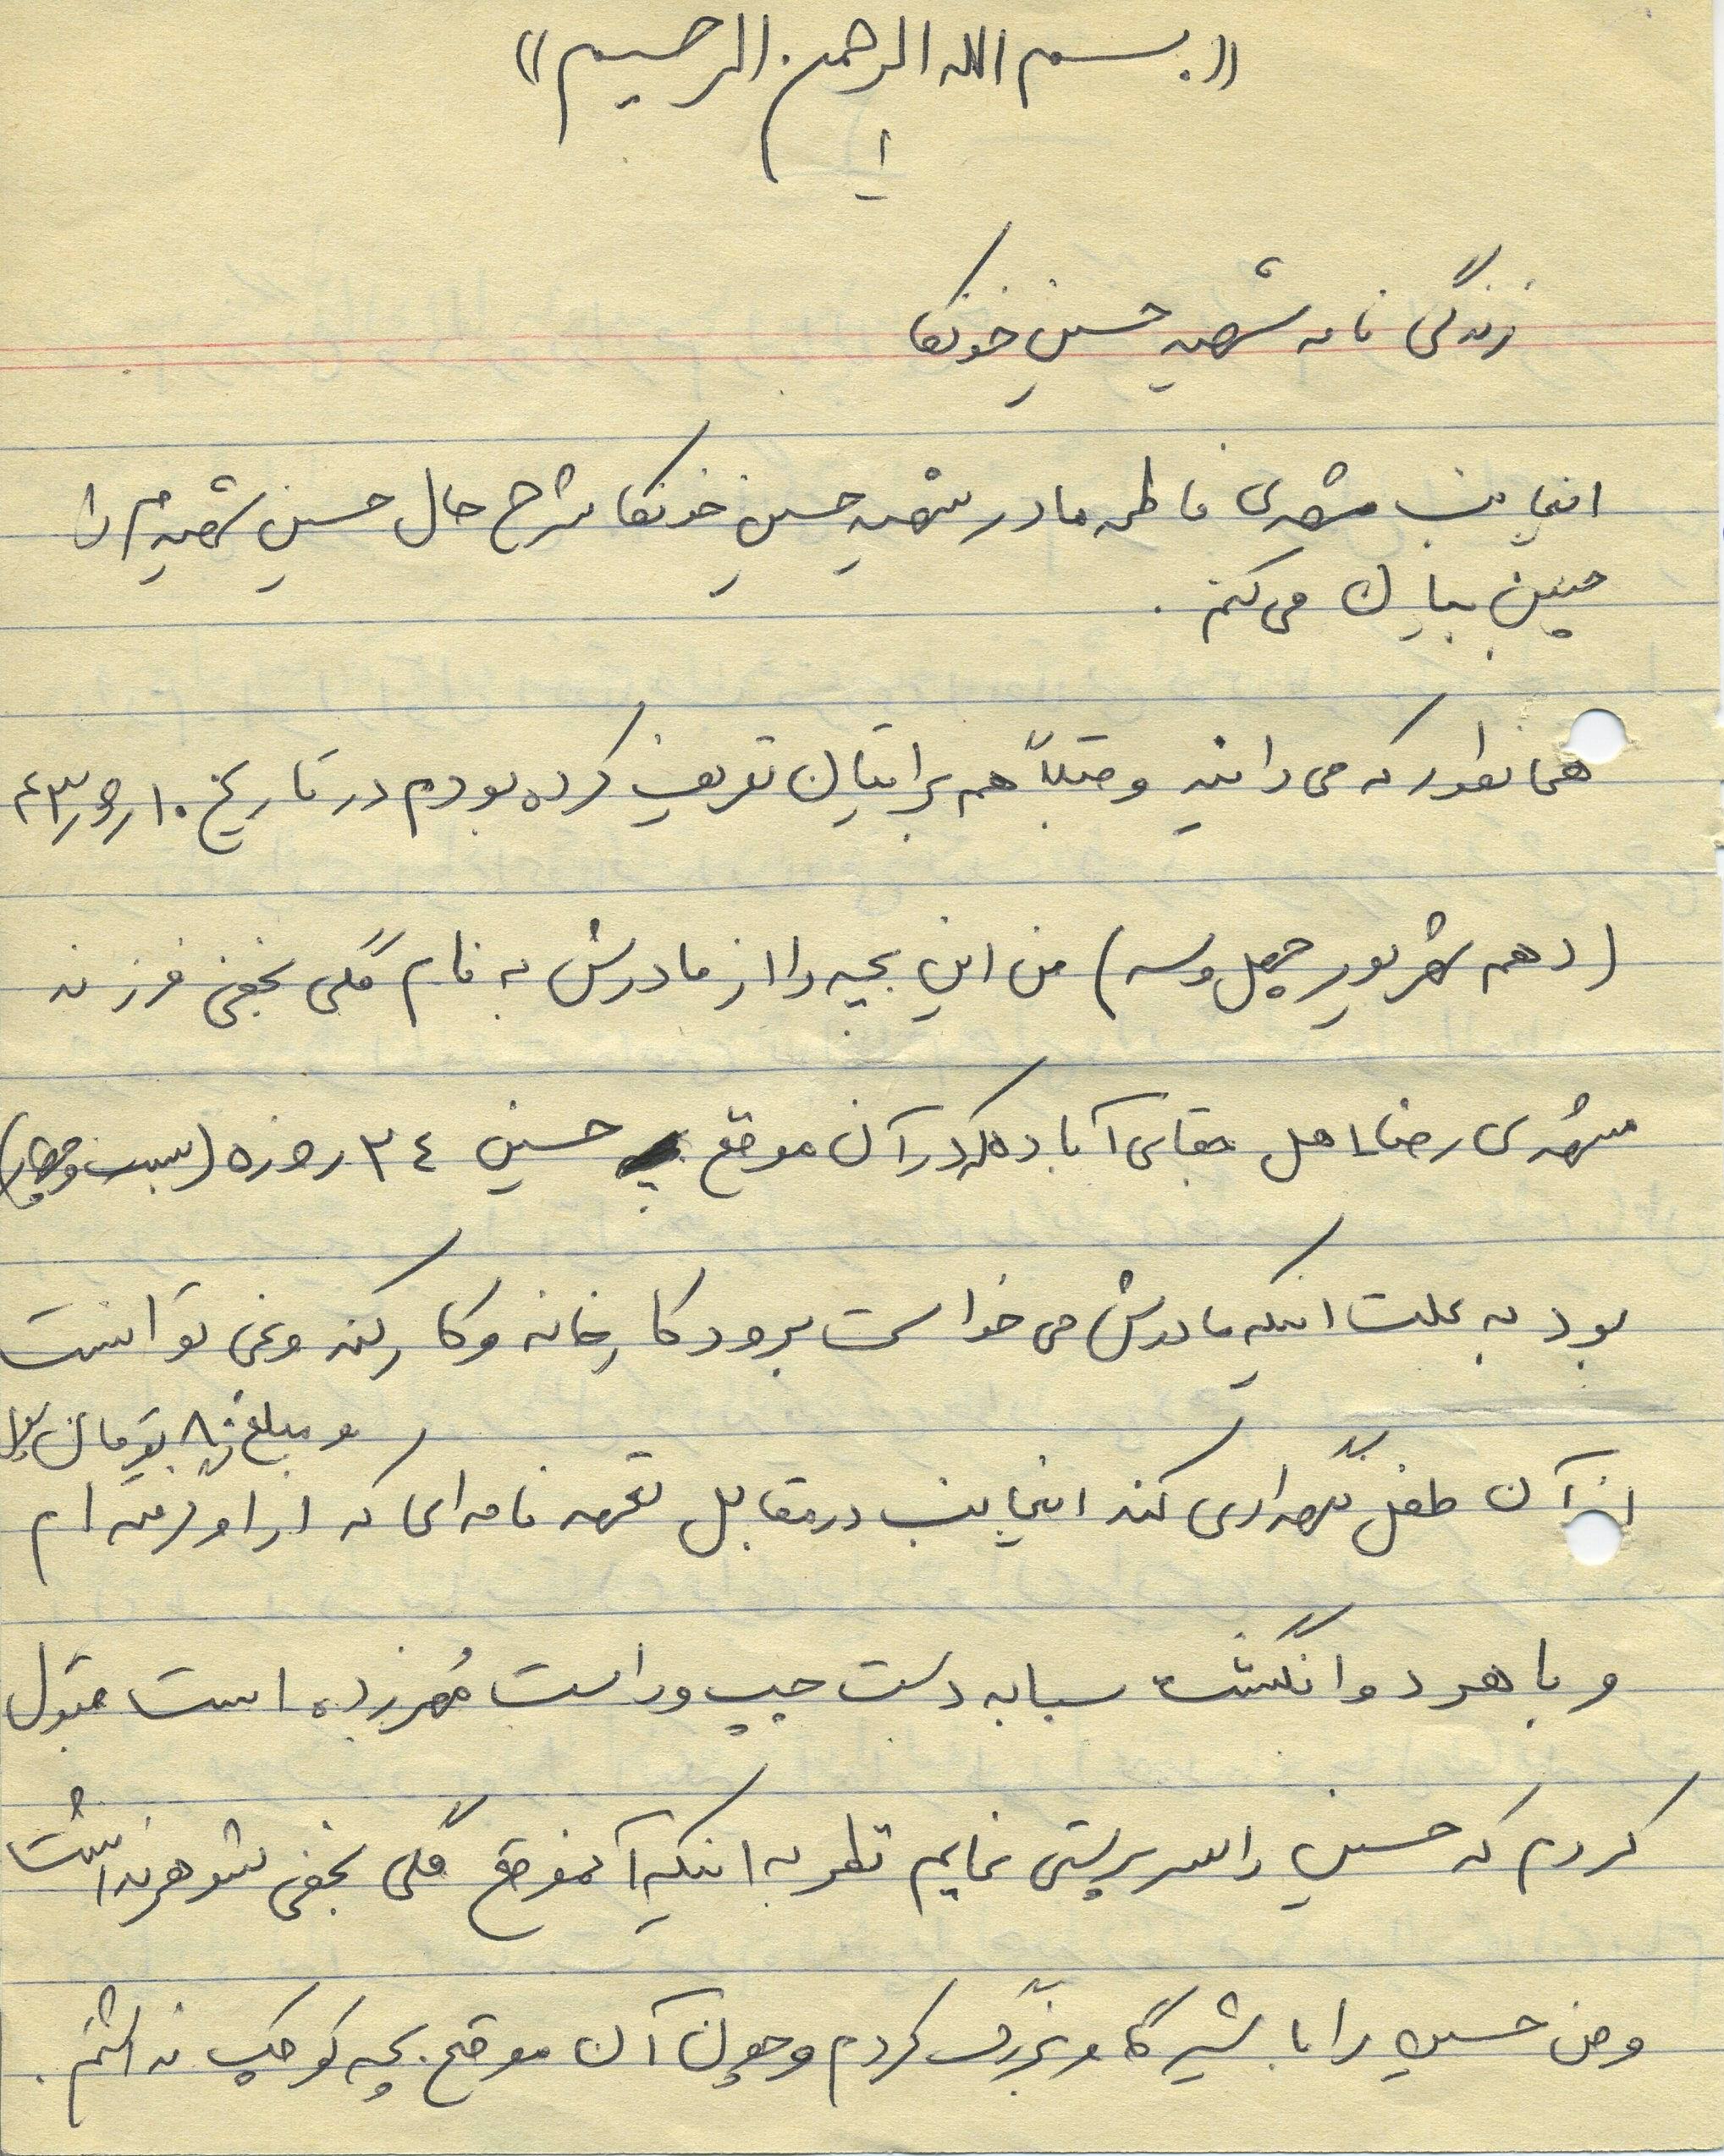 ((بسم الله الرحمن الرحیم))
۱
زندگی نامه شهید حسین خونکا
اینجانب مشهدی فاطمه مادر شهید حسین خونکا شرح حال حسین شهیدم را
چنین بیان می کنم .
همانطور که می دانید و قبلاً هم برایتان تعریف کرده بودم در تاریخ ۱۰ر۶ر۴۳
(دهم شهریور چهل و سه) من این بچه را از مادرش به نام گلی نجفی فرزند
مشهدی رضا اهل آباده که در آن موقع حسین ۲۴ روزه (بیست و چهار)
بود به علت اینکه مادرش می خواست برود کارخانه و کار کند و نمی توانست
و مبلغ ۸۰ تومان
از آن طفل نگهداری کند اینجانب در مقابل تعهد نامه ای که از او گرفته ام
و با هر دو انگشت سبابه دست چپ و راست مُهر زده است قبول
کردم که حسین را سرپرستی نمایم نظر به اینکه آنموقع گلی نجفی شوهر نداشت
و من حسین را با شیر گاو بزرگ کردم و چون آن موقع بچه کوچک نداشتم .